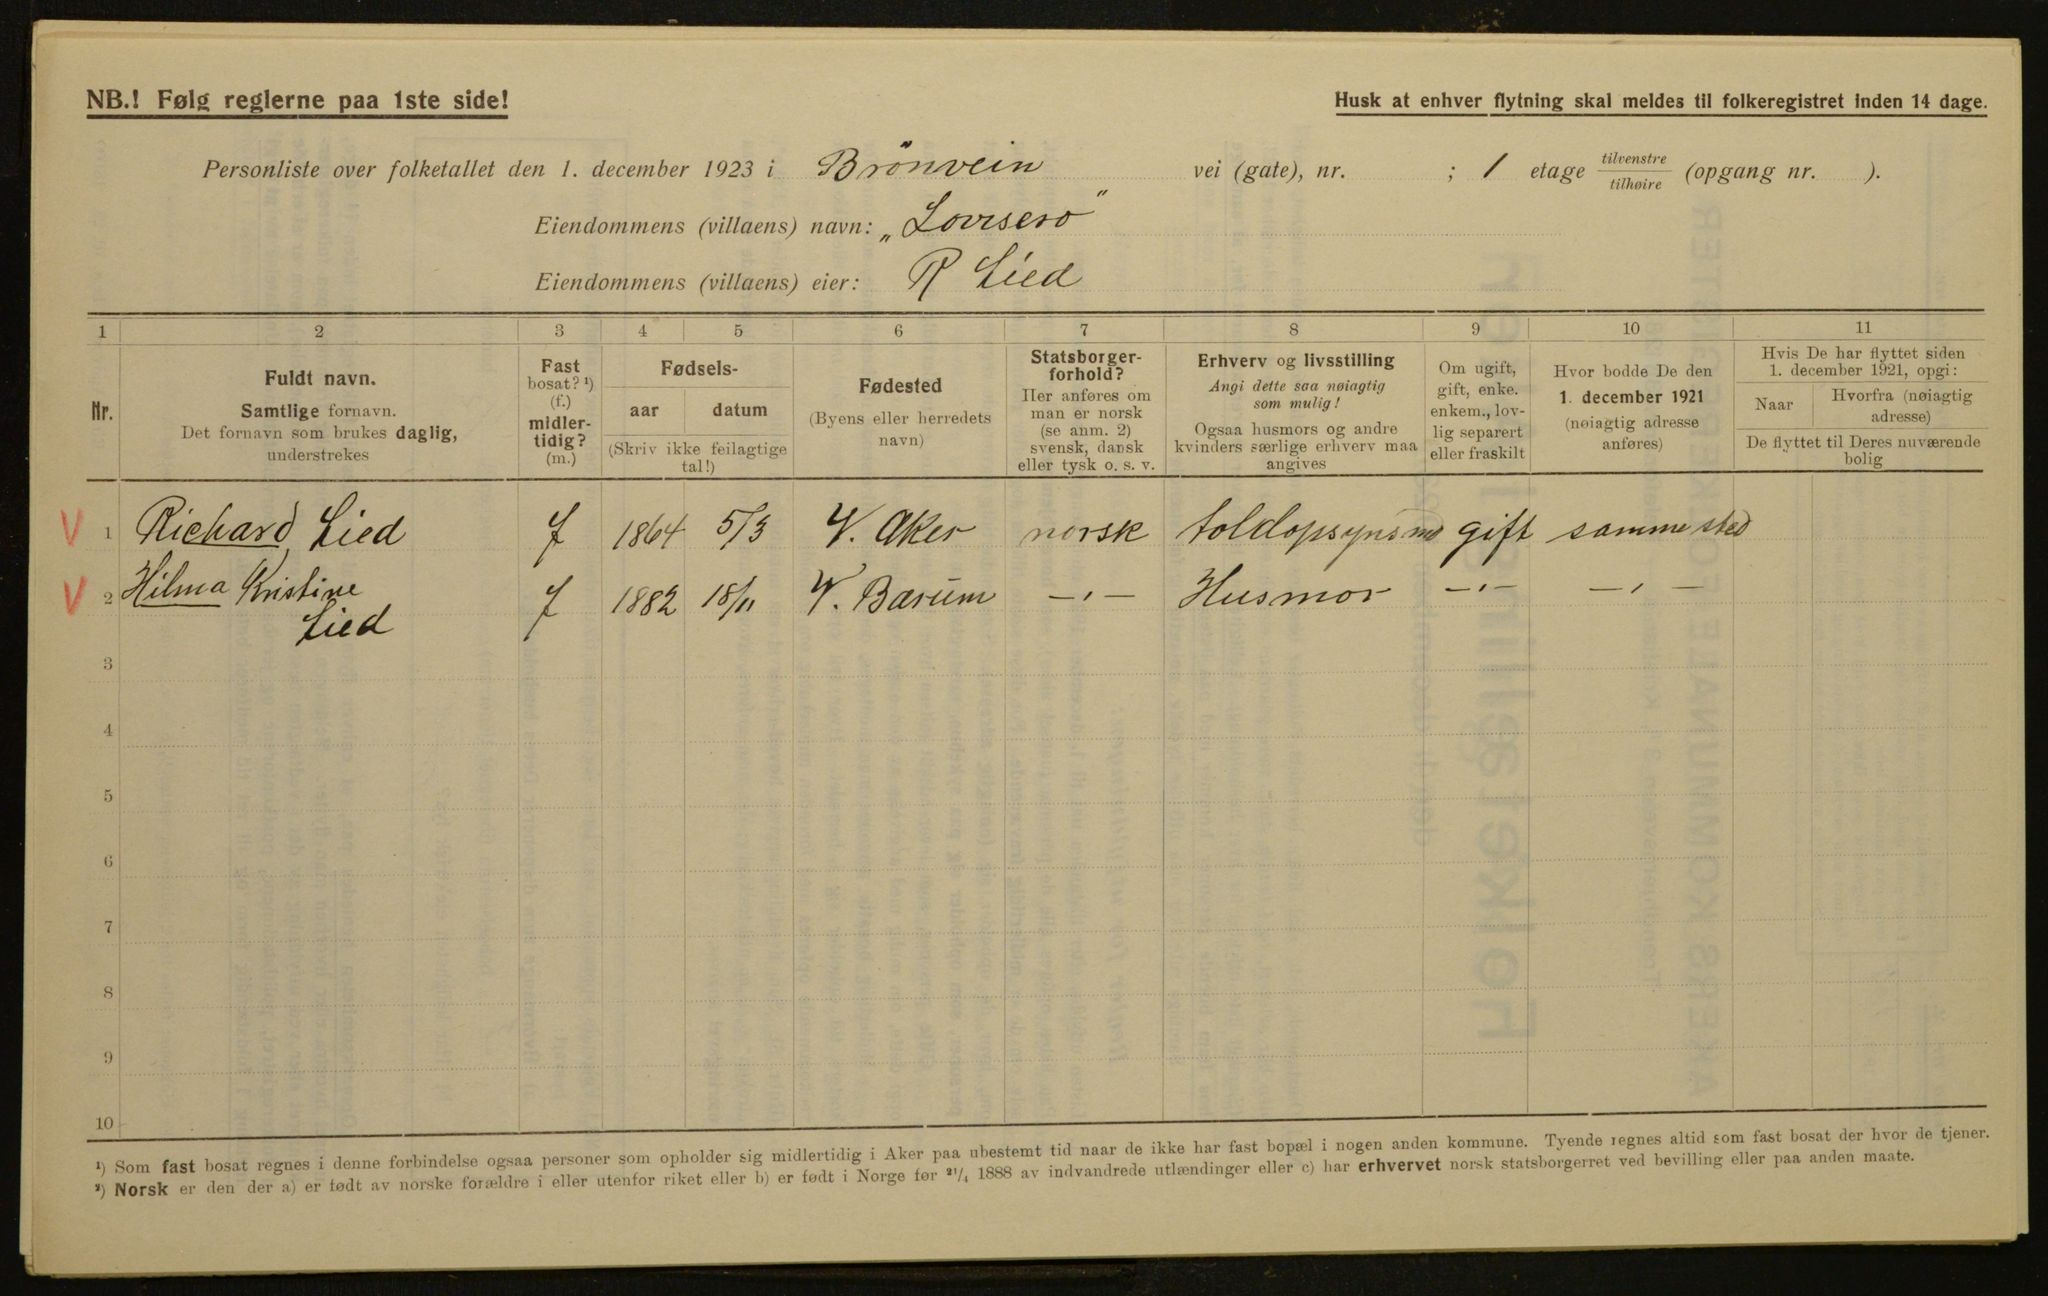 NB.! Følg reglerne paa 1ste side!
Husk at enhver flytning skal meldes til folkeregistret inden 14 dage.
Personliste over folketallet den 1. december 1923 i Brönvein vei (gate), nr. ; 1 etage tilvenstre/tilhøire (opgang nr. ).
Eiendommens (villaens) navn: „Lovisero"
Eiendommens (villaens) eier: R Lied
1 2 3 4 5 6 7 8 9 10 11
Nr.
Fuldt navn.
Samtlige fornavn.
Det fornavn som brukes daglig,
understrekes
Fast
bosat? ¹)
(f.)
midler-
tidig?
(m.)
Fødsels-
aar datum
(Skriv ikke feilagtige
tal!)
Fødested
(Byens eller herredets
navn)
Statsborger-
forhold?
Her anføres om
man er norsk
(se anm. 2)
svensk, dansk
eller tysk o. s. v.
Erhverv og livsstilling
Angi dette saa nøiagtig
som mulig!
Ogsaa husmors og andre
kvinders særlige erhverv maa
angives
Om ugift,
gift, enke.
enkem., lov-
lig separert
eller fraskilt
Hvor bodde De den
1. december 1921
(nøiagtig adresse
anføres)
Hvis De har flyttet siden
1. december 1921, opgi:
Naar
Hvorfra (nøiagtig
adresse)
De flyttet til Deres nuværende
bolig
V 1 Richard Lied f 1864 5/3 V. Aker norsk toldopsynsmd gift samme sted
V 2 Hilma Kristine f 1882 18/11 V. Bærum —„— Husmor —„— —„—
Lied
3
4
5
6
7
8
9
10
¹) Som fast bosat regnes i denne forbindelse ogsaa personer som opholder sig midlertidig i Aker paa ubestemt tid naar de ikke har fast bopæl i nogen anden kommune. Tyende regnes altid som fast bosat der hvor de tjener.
²) Norsk er den der a) er født av norske forældre i eller utenfor riket eller b) er født i Norge før ²¹/₄ 1888 av indvandrede utlændinger eller c) har erhvervet norsk statsborgerret ved bevilling eller paa anden maate.